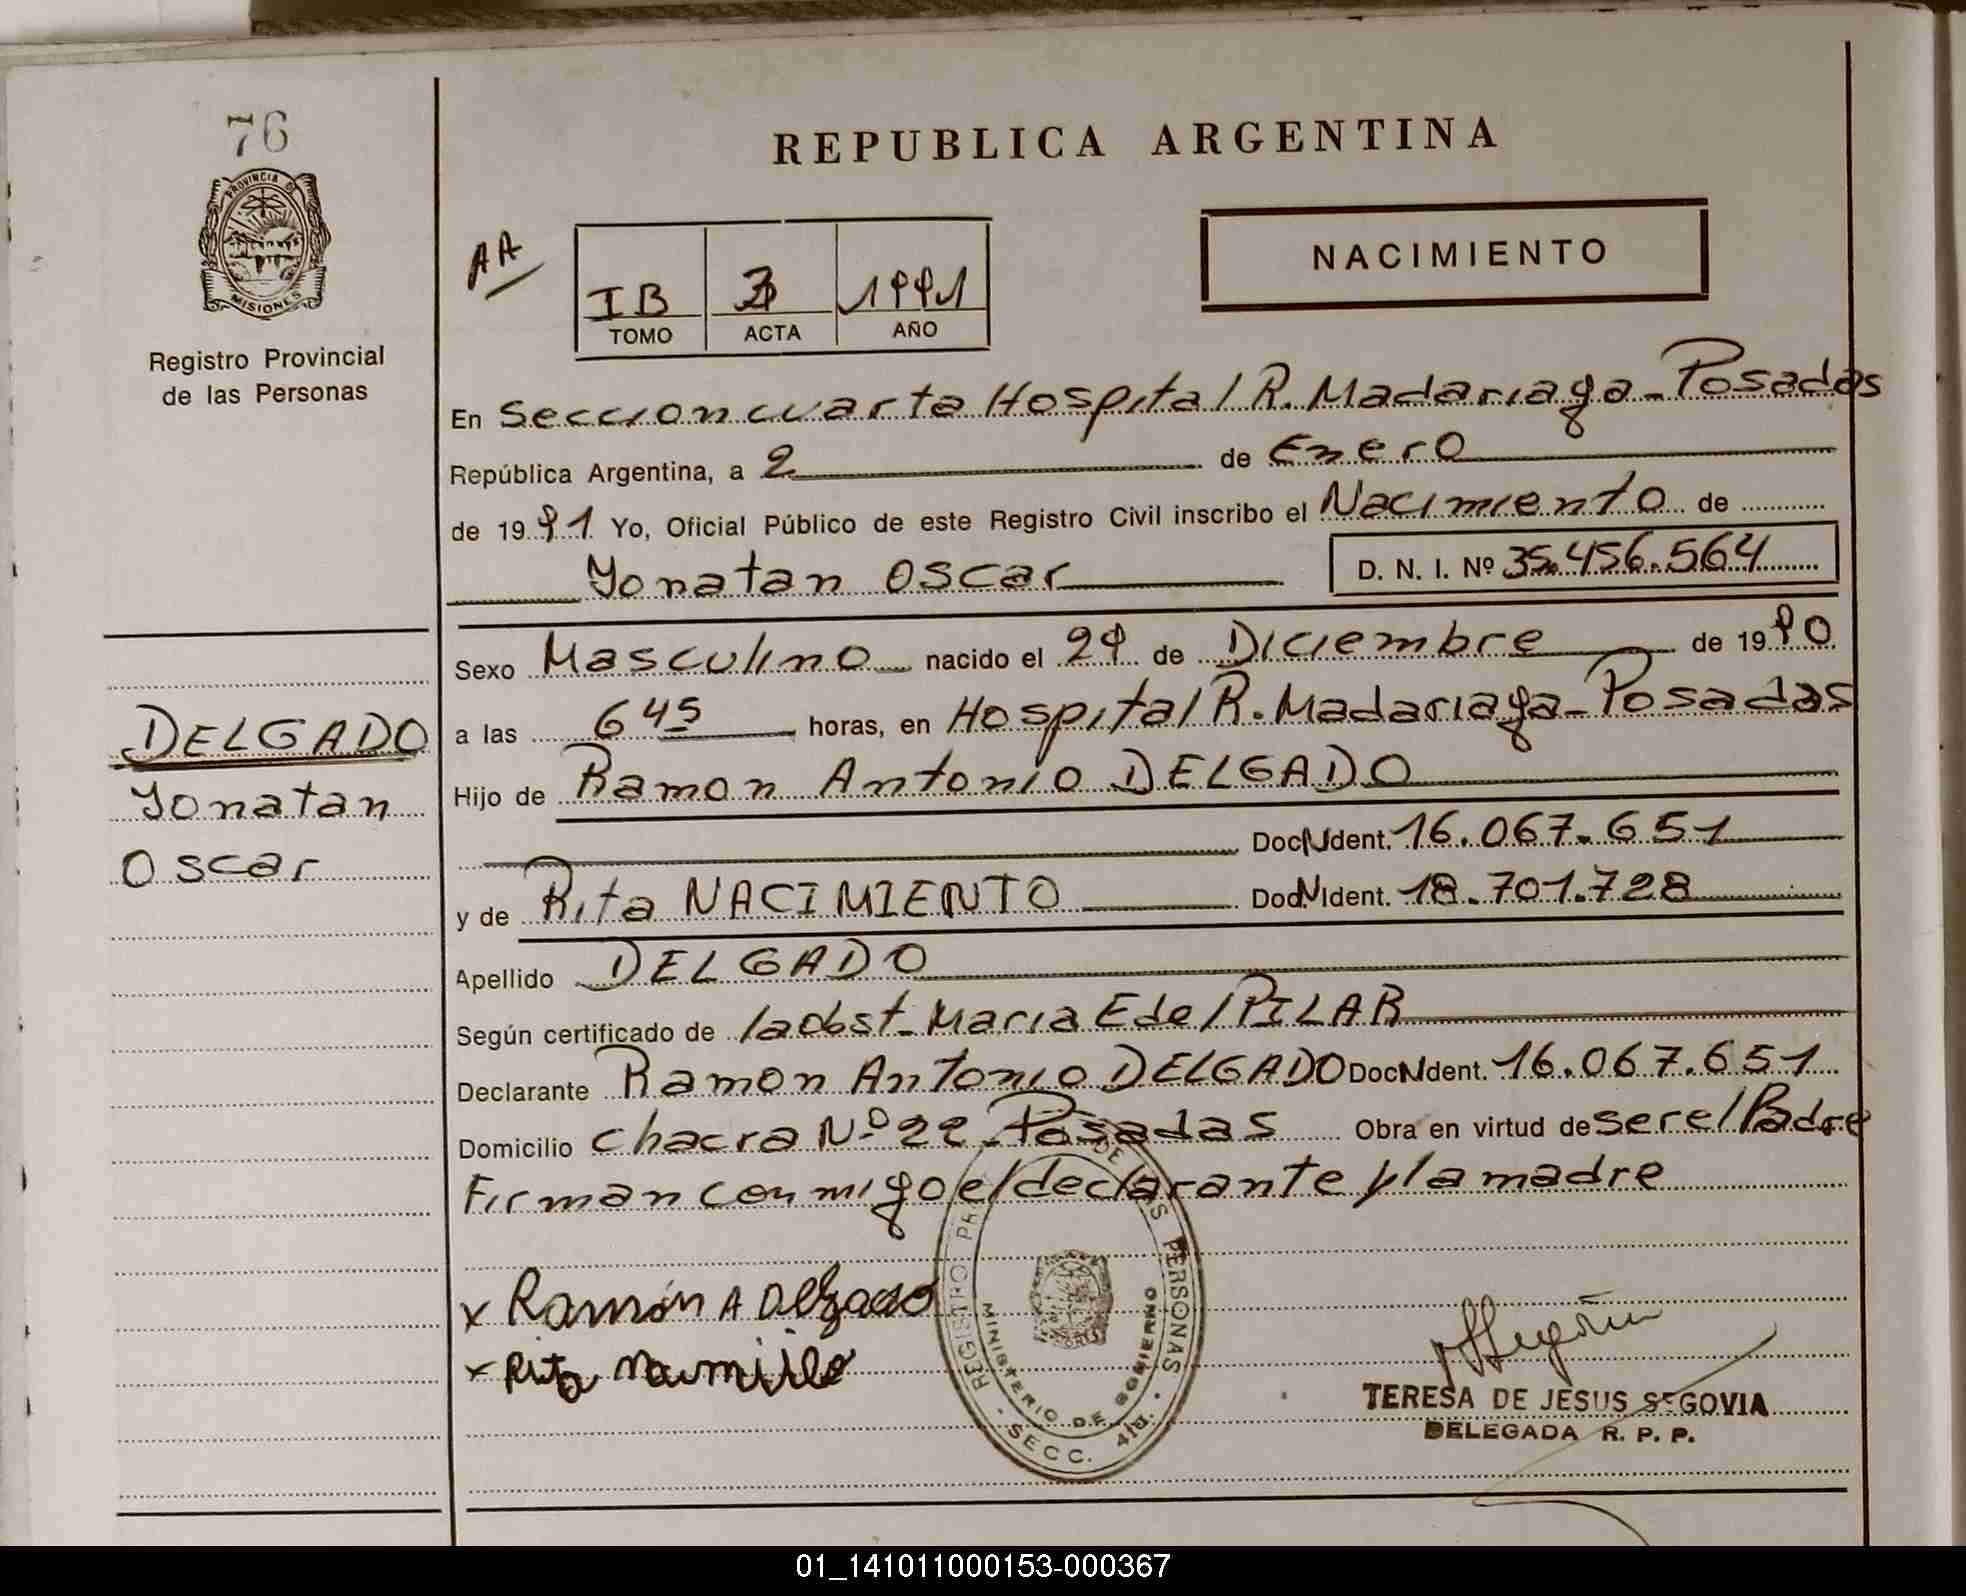 76
PROVINCIA DE
MISIONES
Registro Provincial
de las Personas
DELGADO
Yonatan
Oscar
REPUBLICA ARGENTINA
AA
IB 3 1991
TOMO ACTA AÑO
NACIMIENTO
En Seccion cuarta Hospital R. Madariaga - Posadas
República Argentina, a 2 de Enero
de 1991 Yo, Oficial Público de este Registro Civil inscribo el Nacimiento de
Yonatan Oscar D. N. I. Nº 35.456.564
Sexo Masculino nacido el 29 de Diciembre de 1990
a las 6 45 horas, en Hospital R. Madariaga - Posadas
Hijo de Ramon Antonio DELGADO
Doc. Ident. 16.067.651
y de Rita NACIMIENTO Doc. Ident. 18.701.728
Apellido DELGADO
Según certificado de la obst. Maria E del PILAR
Declarante Ramon Antonio DELGADO Doc. Ident. 16.067.651
Domicilio chacra Nº 22 - Posadas Obra en virtud de ser el Padre
Firman conmigo el declarante y la madre
x Ramón A Delgado
x Rita
REGISTRO DE LAS PERSONAS
MINISTERIO DE GOBIERNO
SECC. 4ta.
TERESA DE JESUS SEGOVIA
DELEGADA R. P. P.
01_141011000153-000367